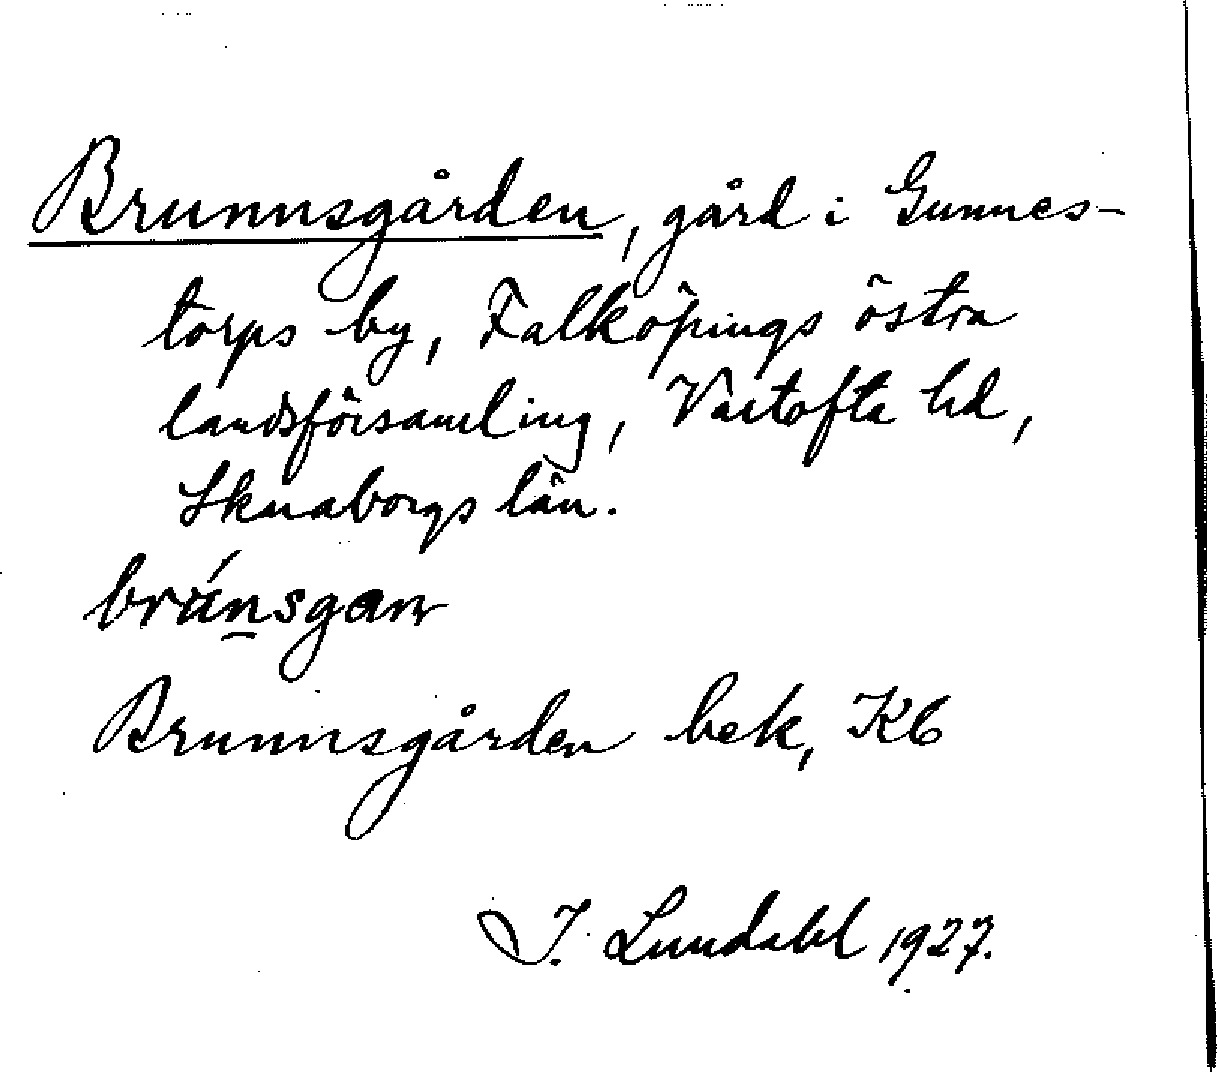 Brunnsgården, gård i Gunnes-
torps by, Falköpings östra
landsförsamling, Vartofta hd,
Skaraborgs län.
brúnsgan
Brunnsgården bek, Kb
I. Lundahl 1927.